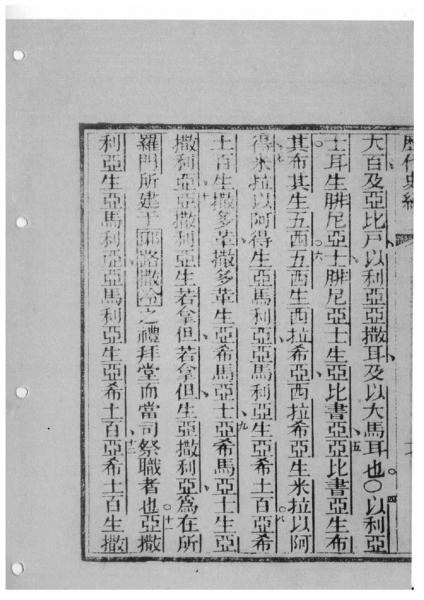 歷代史紀
大百及亞比戶以利亞亞撒耳及以大馬耳也。○四以利亞
士耳生腓尼亞士腓尼亞士生亞比書亞五亞比書亞生布
其布其生五西。六五西生西拉希亞西拉希亞生米拉以阿
得米拉以阿得生亞馬利亞亞馬利亞生亞希土百。八亞希
土百生撒多革撒多革生亞希馬亞士九亞希馬亞士生亞
撒利亞十亞撒利亞生若拿但若拿但生亞撒利亞爲在所
羅門所建于耶路撒冷之禮拜堂而當司祭職者也。十一亞撒
利亞生亞馬利亞亞馬利亞生亞希土百十二亞希土百生撒